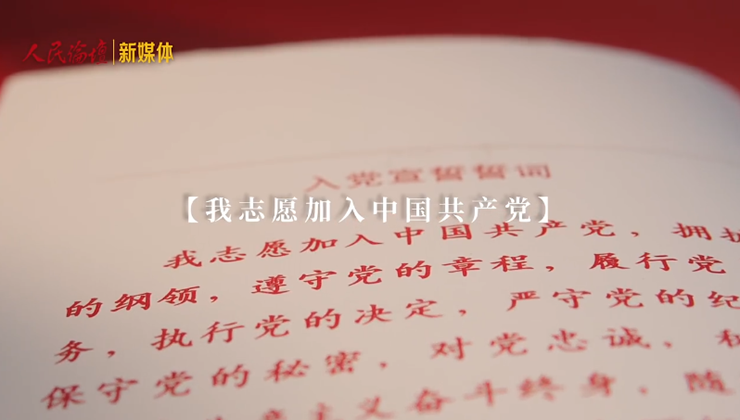 人民论坛 新媒体
入党宣誓誓词
【我志愿加入中国共产党】
我志愿加入中国共产党，拥护
的纲领，遵守党的章程，履行党
务，执行党的决定，严守党的纪
保守党的秘密，对党忠诚，积
主义奋斗终身，随